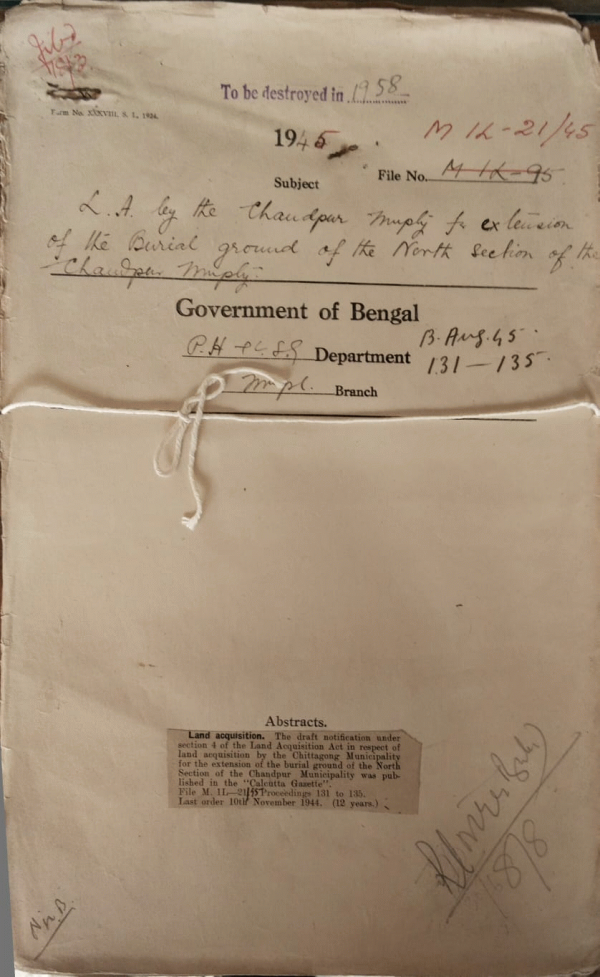 To be destroyed in 1958
Form No. XXXVIII. S. L., 1934.
1945.
M 1L-21/45
File No. M 1L-95
Subject
L. A. by the Chandpur Mupty for extension
of the Burial ground of the North section of the
Chandpur Mupty.
Government of Bengal
P.H & L.S.G Department
B. Aug. 45.
131-135.
Mupl. Branch
Abstracts.
Land acquisition. The draft notification under
section 4 of the Land Acquisition Act in respect of
land acquisition by the Chittagong Municipality
for the extension of the burial ground of the North
Section of the Chandpur Municipality was pub-
lished in the "Calcutta Gazette".
File M. 1L—21/45 Proceedings 131 to 135.
Last order 10th November 1944. (12 years.)
8/8